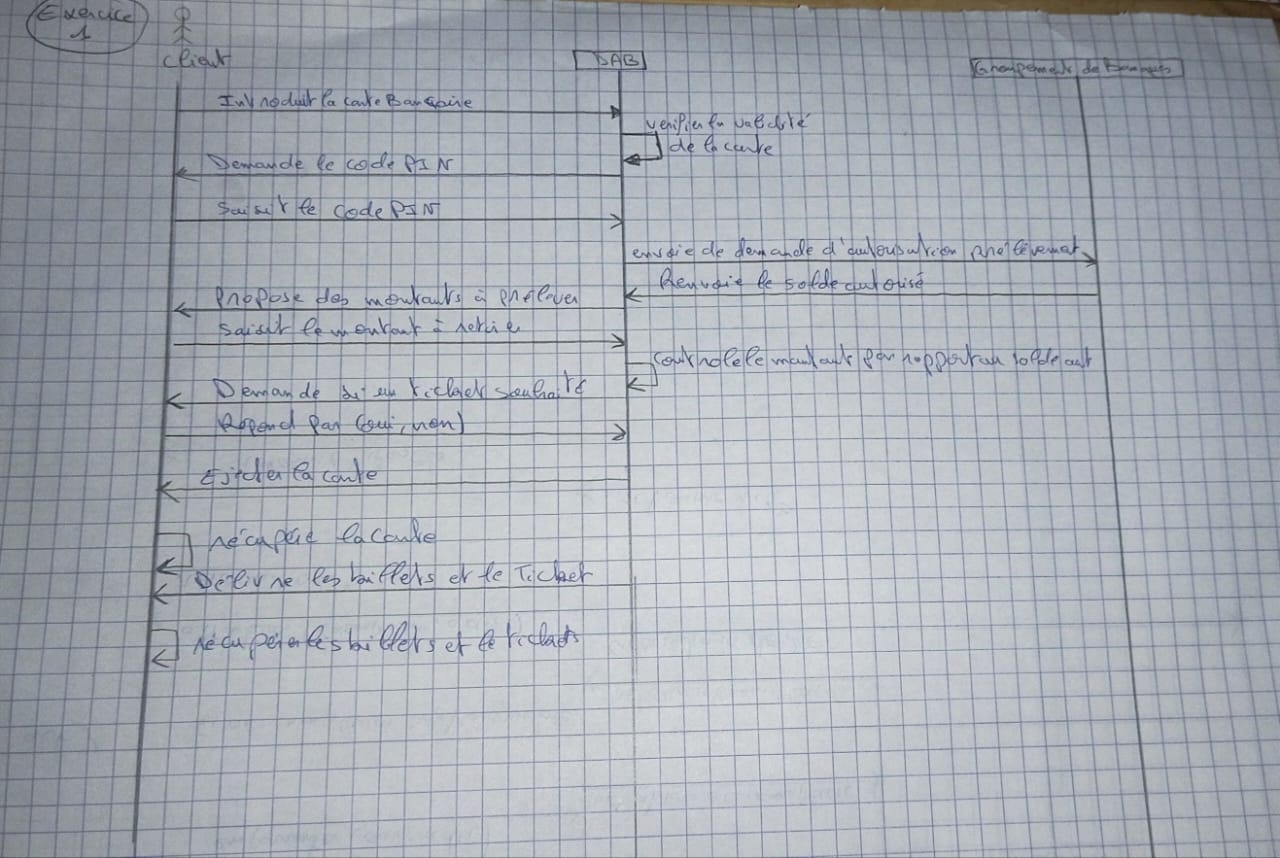 Exercice
1
Client
DAB
Groupement de banques
Introduit la carte Bancaire
vérifier la validité
de la carte
Demande le code PIN
Saisit le code PIN
envoie de demande d'autorisation prélèvement
Renvoie le solde autorisé
Propose des montants à prélever
saisit le montant à retire
controle le montant par rapport au solde aut
Demande si un ticket souhaité
Répond par (oui, non)
Ejecter la carte
récupère la carte
Délivre les billets et le Ticket
récupérer les billets et le tickets